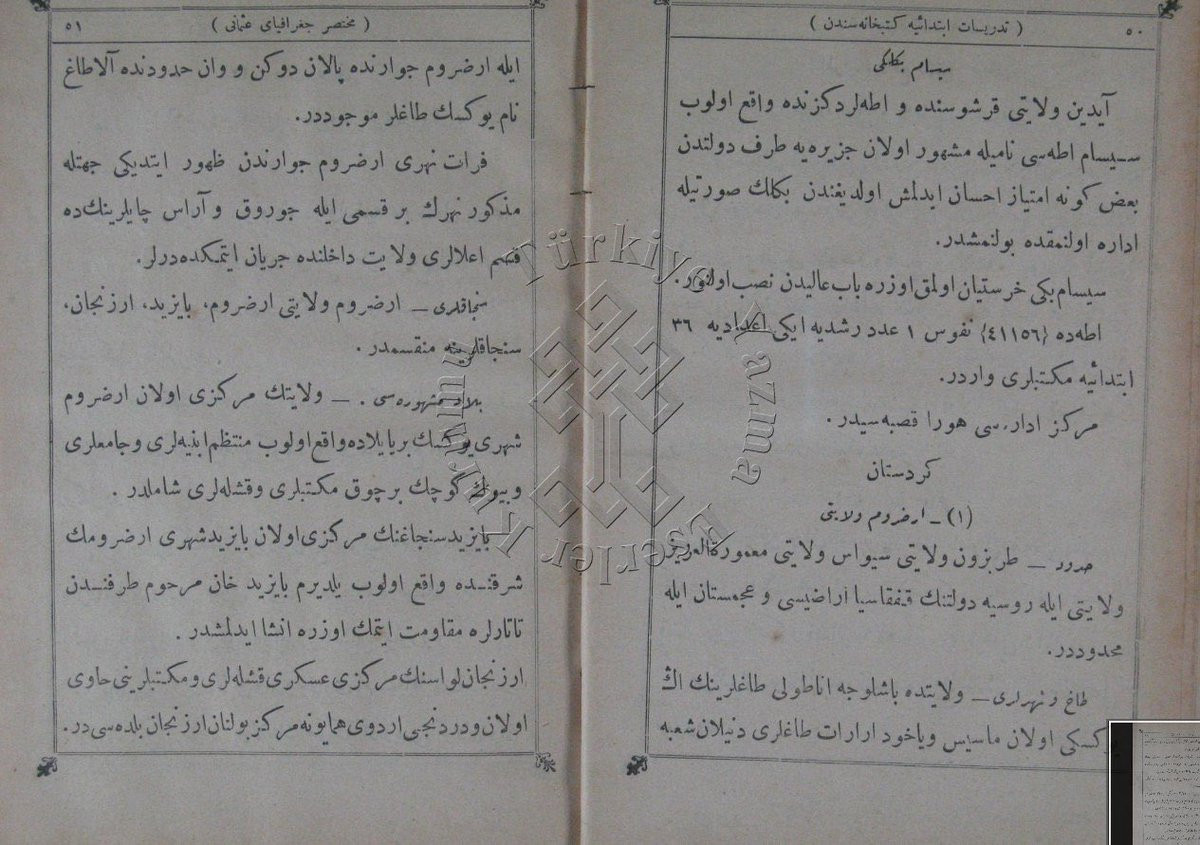 ٥٠
( تدریسات ابتدائیه کتبخانه سندن )
سیسام بکلکی
آیدین ولایتی قرشوسنده و اطه‌لر دکزنده واقع اولوب
سیسام اطه‌سی نامیله مشهور اولان جزیره‌یه طرف دولتدن
بعض کونه امتیاز احسان ایدلمش اولدیغندن بکلك صورتیله
اداره اولنمقده بولنمشدر.
سیسام بکی خرستیان اولمق اوزره باب عالیدن نصب اولنور.
اطه‌ده {٤١١٥٦} نفوس ١ عدد رشدیه ایکی اعدادیه ٣٦
ابتدائیه مکتبلری واردر.
مرکز اداره‌سی هورا قصبه‌سیدر.
کردستان
(١) ـ ارضروم ولایتی
حدود ــ طربزون ولایتی سیواس ولایتی معمورة‌العزیز
ولایتی ایله روسیه دولتنك قفقاسیا اراضیسی و عجمستان ایله
محدوددر.
طاغ و نهرلری ــ ولایتده باشلوجه اناطولی طاغلرینك اڭ
یوکسکی اولان ماسیس ویاخود ارارات طاغلری دنیلان شعبه
( مختصر جغرافیای عثمانی )
٥١
ایله ارضروم جوارنده پالان دوکن و وان حدودنده آلاطاغ
نام یوکسك طاغلر موجوددر.
فرات نهری ارضروم جوارندن ظهور ایتدیکی جهتله
مذکور نهرك بر قسمی ایله جوروق و آراس چایلرینك ده
قسم اعلالری ولایت داخلنده جریان ایتمکده‌درلر.
سنجاقلری ــ ارضروم ولایتی ارضروم، بایزید، ارزنجان،
سنجاقلرینه منقسمدر.
بلاد مشهوره‌سی . ــ ولایتك مرکزی اولان ارضروم
شهری یوکسك بر یایلاده واقع اولوب منتظم ابنیه‌لری و جامعلری
و بیوك کوچك بر چوق مکتبلری و قشله‌لری شاملدر .
بایزید سنجاغنك مرکزی اولان بایزید شهری ارضرومك
شرقنده واقع اولوب یلدیرم بایزید خان مرحوم طرفندن
تاتارلره مقاومت ایتمك اوزره انشا ایدلمشدر .
ارزنجان لواسنك مرکزی عسکری قشله‌لری و مکتبلرینی حاوی
اولان و دردنجی اردوی همایونه مرکز بولنان ارزنجان بلده‌سی‌در.
Türkiye Yazma Eserler Kurumu